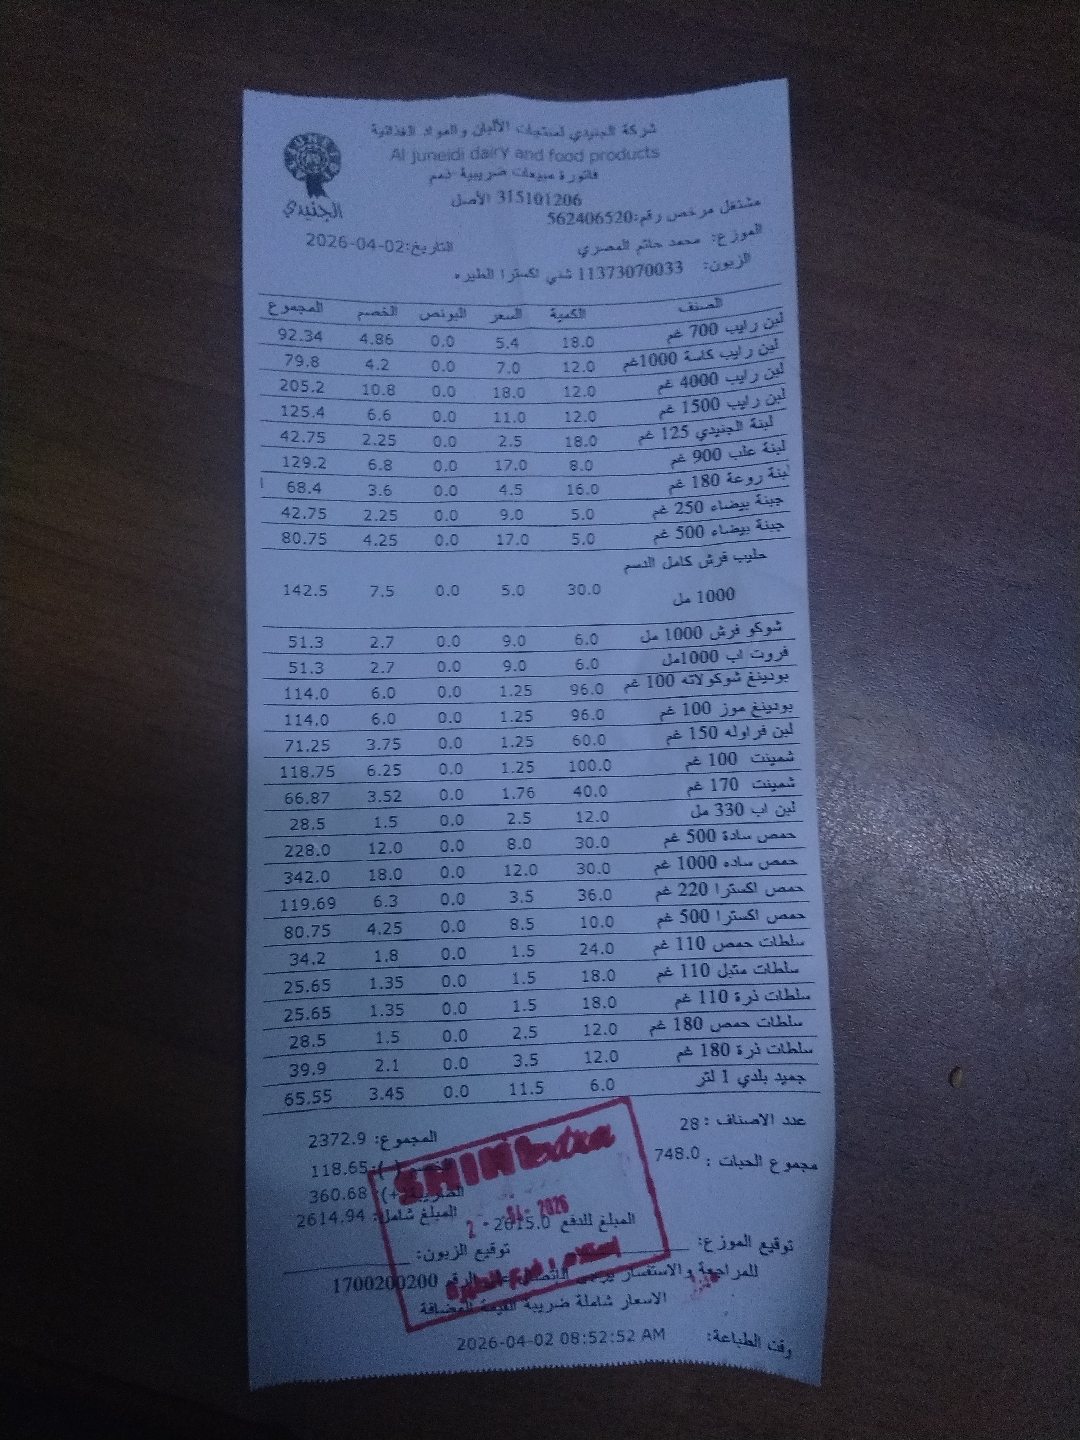 شركة الجنيدي لمنتجات الألبان والمواد الغذائية
Al Juneidi dairy and food products
فاتورة مبيعات ضريبية ذمم
315101206 الأصل
الجنيدي
مشتغل مرخص رقم:562406520
الموزع: محمد حاتم المصري
التاريخ:2026-04-02
الزبون: 11373070033 شني اكسترا الطيره
الصنف الكمية السعر البونص الخصم المجموع
لبن رايب 700 غم 18.0 5.4 0.0 4.86 92.34
لبن رايب كاسة 1000غم 12.0 7.0 0.0 4.2 79.8
لبن رايب 4000 غم 12.0 18.0 0.0 10.8 205.2
لبن رايب 1500 غم 12.0 11.0 0.0 6.6 125.4
لبنة الجنيدي 125 غم 18.0 2.5 0.0 2.25 42.75
لبنة علب 900 غم 8.0 17.0 0.0 6.8 129.2
لبنة روعة 180 غم 16.0 4.5 0.0 3.6 68.4
جبنة بيضاء 250 غم 5.0 9.0 0.0 2.25 42.75
جبنة بيضاء 500 غم 5.0 17.0 0.0 4.25 80.75
حليب فرش كامل الدسم
1000 مل 30.0 5.0 0.0 7.5 142.5
شوكو فرش 1000 مل 6.0 9.0 0.0 2.7 51.3
فروت اب 1000مل 6.0 9.0 0.0 2.7 51.3
بودينغ شوكولاته 100 غم 96.0 1.25 0.0 6.0 114.0
بودينغ موز 100 غم 96.0 1.25 0.0 6.0 114.0
لبن فراوله 150 غم 60.0 1.25 0.0 3.75 71.25
شمينت 100 غم 100.0 1.25 0.0 6.25 118.75
شمينت 170 غم 40.0 1.76 0.0 3.52 66.87
لبن اب 330 مل 12.0 2.5 0.0 1.5 28.5
حمص سادة 500 غم 30.0 8.0 0.0 12.0 228.0
حمص ساده 1000 غم 30.0 12.0 0.0 18.0 342.0
حمص اكسترا 220 غم 36.0 3.5 0.0 6.3 119.69
حمص اكسترا 500 غم 10.0 8.5 0.0 4.25 80.75
سلطات حمص 110 غم 24.0 1.5 0.0 1.8 34.2
سلطات متبل 110 غم 18.0 1.5 0.0 1.35 25.65
سلطات ذرة 110 غم 18.0 1.5 0.0 1.35 25.65
سلطات حمص 180 غم 12.0 2.5 0.0 1.5 28.5
سلطات ذرة 180 غم 12.0 3.5 0.0 2.1 39.9
جميد بلدي 1 لتر 6.0 11.5 0.0 3.45 65.55
عدد الاصناف : 28
المجموع: 2372.9
مجموع الحبات : 748.0
الخصم (-): 118.65
الضريبة(+): 360.68
المبلغ شامل: 2614.94
المبلغ للدفع 2615.0
SHINI extra
2 - 04- 2026
إستلام / فرع الطيرة
توقيع الموزع:
توقيع الزبون:
للمراجعة والاستفسار يرجى الاتصال على الرقم 1700200200
الاسعار شاملة ضريبة القيمة المضافة
وقت الطباعة: 2026-04-02 08:52:52 AM